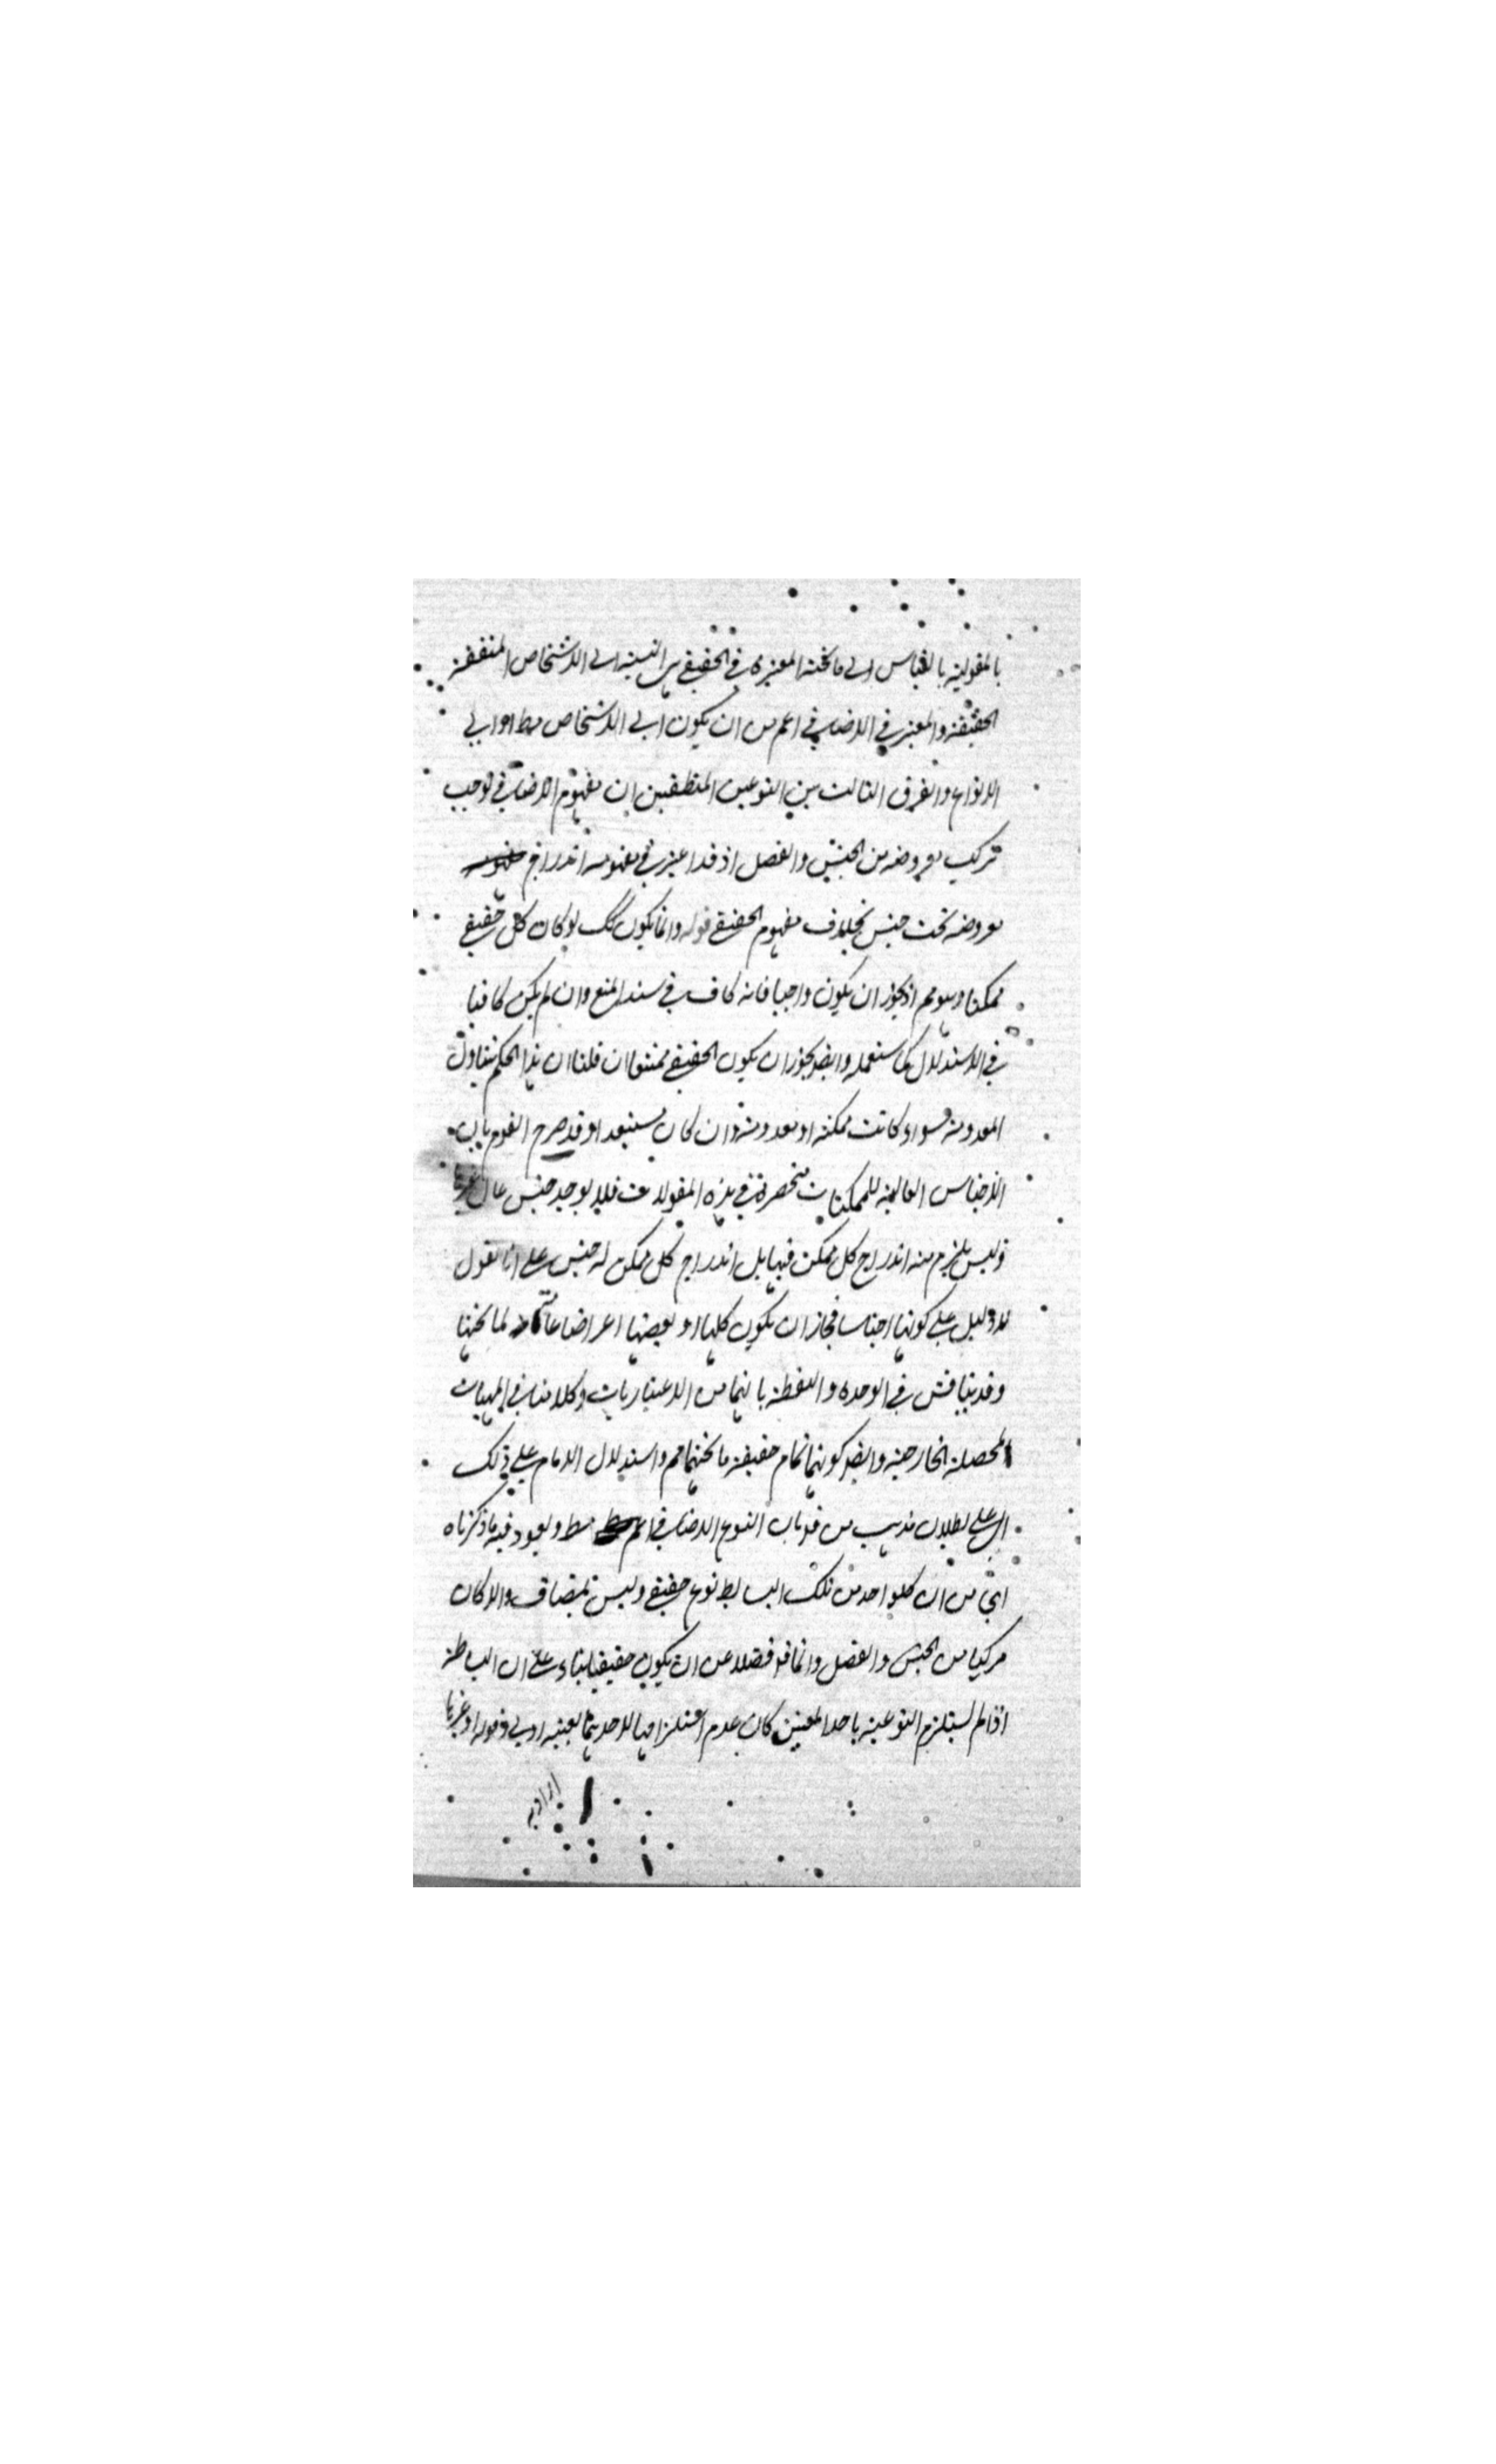 بالمقولية بالقياس الى ما تحته المعتبرة في الحقيقي هي النسبة الى الاشخاص المتفقة
الحقيقة والمعتبر في الاضافي اعم من ان يكون الى الاشخاص فقط او الى
الانواع والفرق الثالث بين النوعين المنطقيين ان مفهوم الاضافي يوجب
تركيب معروضه من الجنس والفصل اذ قد اعتبر في مفهومه اندراج
معروضه تحت جنس بخلاف مفهوم الحقيقي قوله وانما يكون كك لو كان كل حقيقي
ممكنا وهو مم اذ يجوز ان يكون واجبا فانه كاف في سند المنع وان لم يكن كافيا
في الاستدلال كما ستعلمه وايضا يجوز ان يكون الحقيقي ممتنعا ان قلنا ان هذا الحكم يتناول
المعدومة سواء كانت ممكنة او معدومة وان كان مستبعدا وقد صرح القوم بان
الاجناس العالية للممكنات منحصرة في هذه المقولات فلا يوجد جنس عال غيرها
وليس يلزم منه اندراج كل ممكن فيها بل اندراج كل ممكن له جنس على انا نقول
لا دليل على كونها اجناسا فجاز ان يكون كلها او بعضها اعراضا عامة لما تحتها
وقد يناقش في الوحدة والنقطة بانهما من الاعتباريات وكلامنا في المهيات
المحصلة الخارجية وايضا كونهما تمام حقيقة ما تحتهما مم واستدلال الامام على ذلك
اى على بطلان مذهب من قال بان النوع الاضافي اعم مط ويعود فيه ما ذكرناه
اى من ان كلو احد من تلك البسايط نوع حقيقي وليس بمضاف والا لكان
مركبا من الجنس والفصل وانما قال فضلا عن ان يكون حقيقيا بناء على ان البساطة
اذا لم يستلزم النوعية باحد المعنيين كان عدم استلزامها لاحدهما بعينه اولى وقوله او غيرها
اراد به